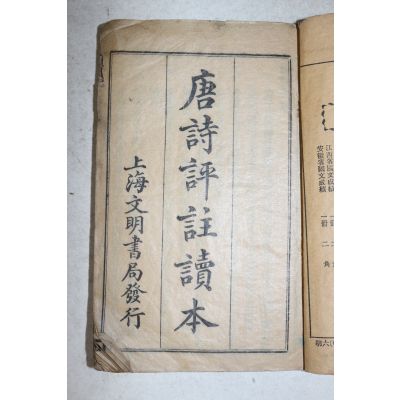 唐詩評註讀本
上海文明書局發行